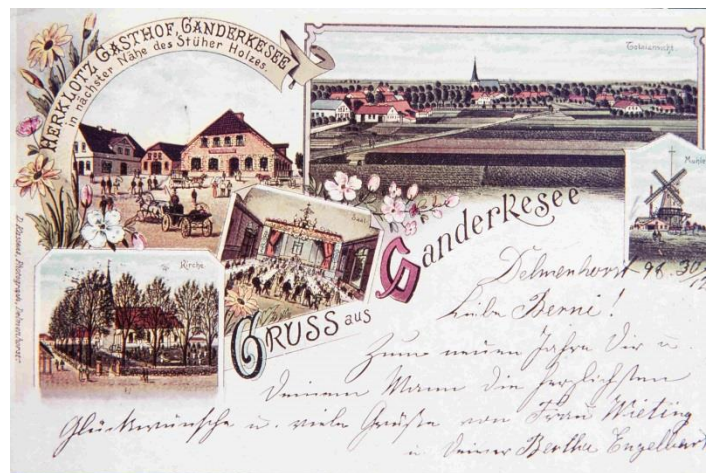 HERKLOTZ GASTHOF, GANDERKESEE
in nächster Nähe des Stüher Holzes.
Totalansicht.
Mühle
Saal
Kirche
Gruss aus
Ganderkesee
Delmenhorst 98. 30/12
Liebe Berni!
Zum neuen Jahre Dir u.
Deinem Mann die herzlichsten
Glückwünsche u. viele Grüße von Frau Wieting
u. Deiner Bertha Engelbart
Photograph, Delmenhorst